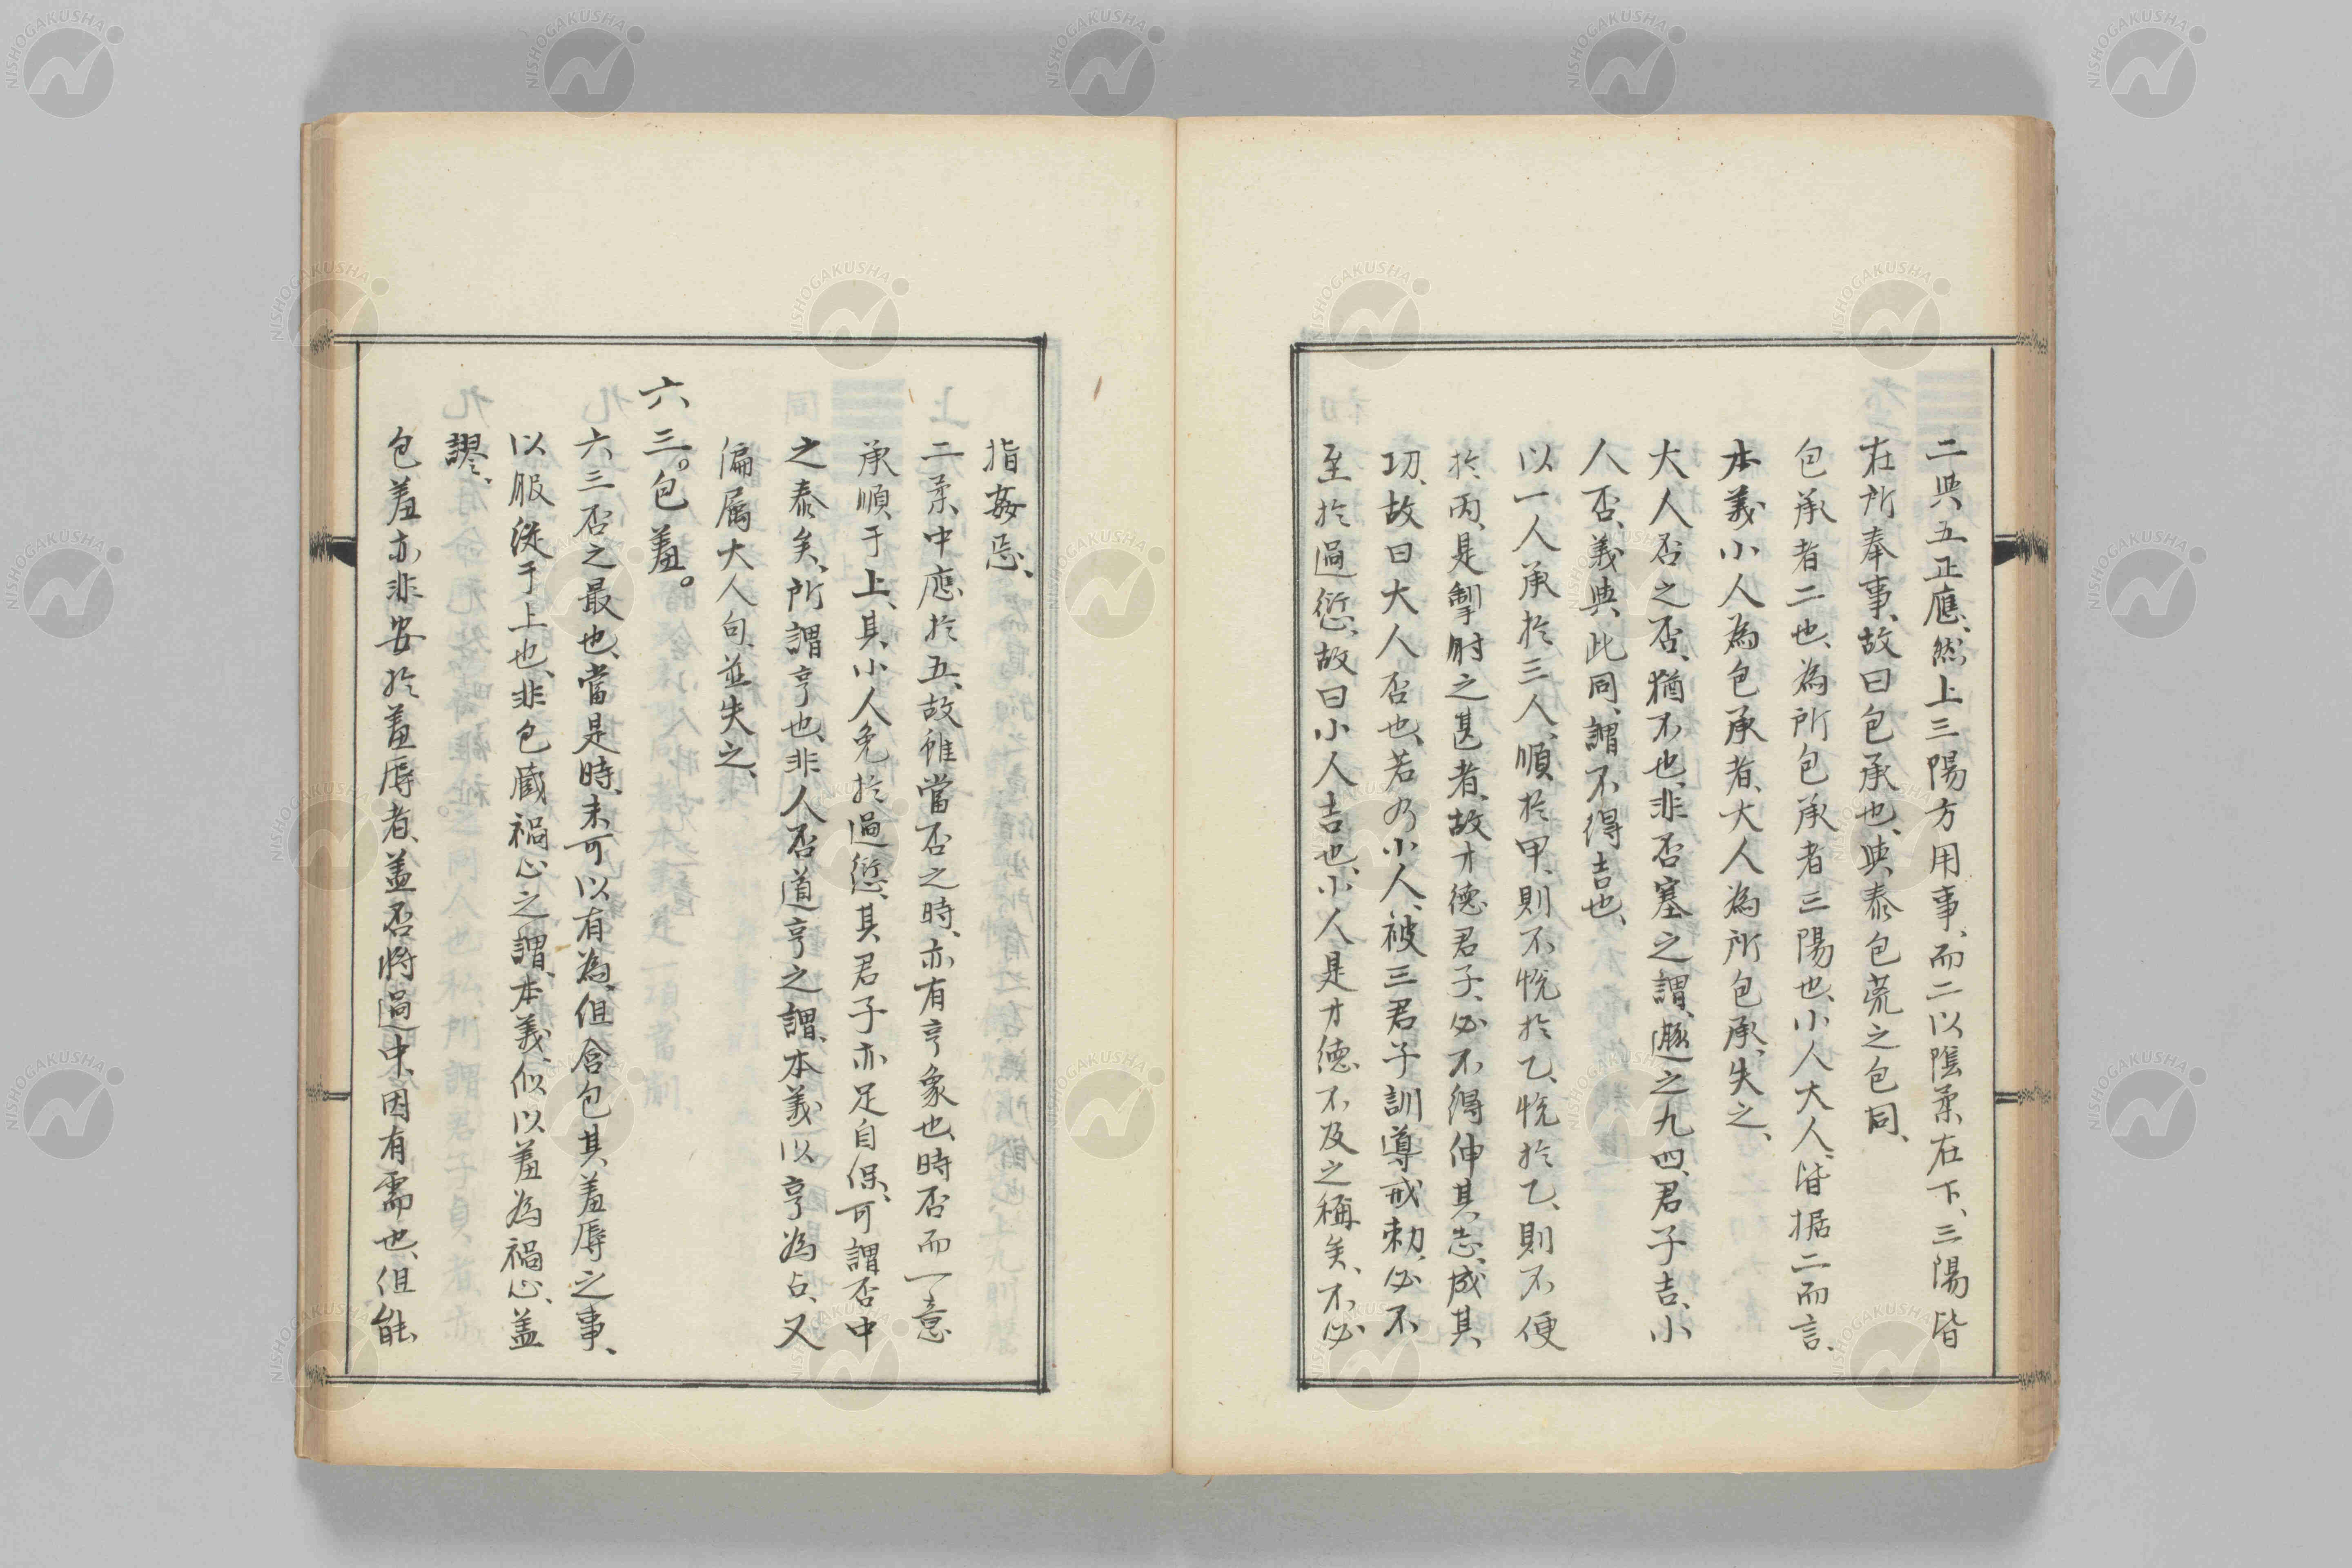 二與五正應、然上三陽方用事、而二以陰柔在下、三陽皆
在所奉事、故曰包承也、與泰包荒之包同、
包承者二也、為所包承者三陽也、小人大人、皆据二而言、
本義小人為包承者、大人為所包承、失之、
大人否之否、猶不也、非否塞之謂、遯之九四、君子吉、小
人否、義與此同、謂不得吉也、
以一人承於三人、順於甲、則不悦於乙、悦於乙、則不便
於丙、是掣肘之甚者、故才德君子、必不得伸其志、成其
功、故曰大人否也、若乃小人、被三君子訓導戒勅、必不
至於過愆、故曰小人吉也、小人是才德不及之稱矣、不必
指姦惡、
二柔中應於五、故雖當否之時、亦有亨象也、時否而一意
承順于上、其小人免於過愆、其君子亦足自保、可謂否中
之泰矣、所謂亨也、非人否道亨之謂、本義以亨為占、又
偏属大人句、並失之、
六三。包羞。
六三否之最也、當是時、未可以有為、但含包其羞辱之事、
以服從于上也、非包蔵禍心之謂、本義、似以羞為禍心、盖
謬、
包羞亦非安於羞辱者、盖否将過中、因有需也、但能
NISHOGAKUSHA